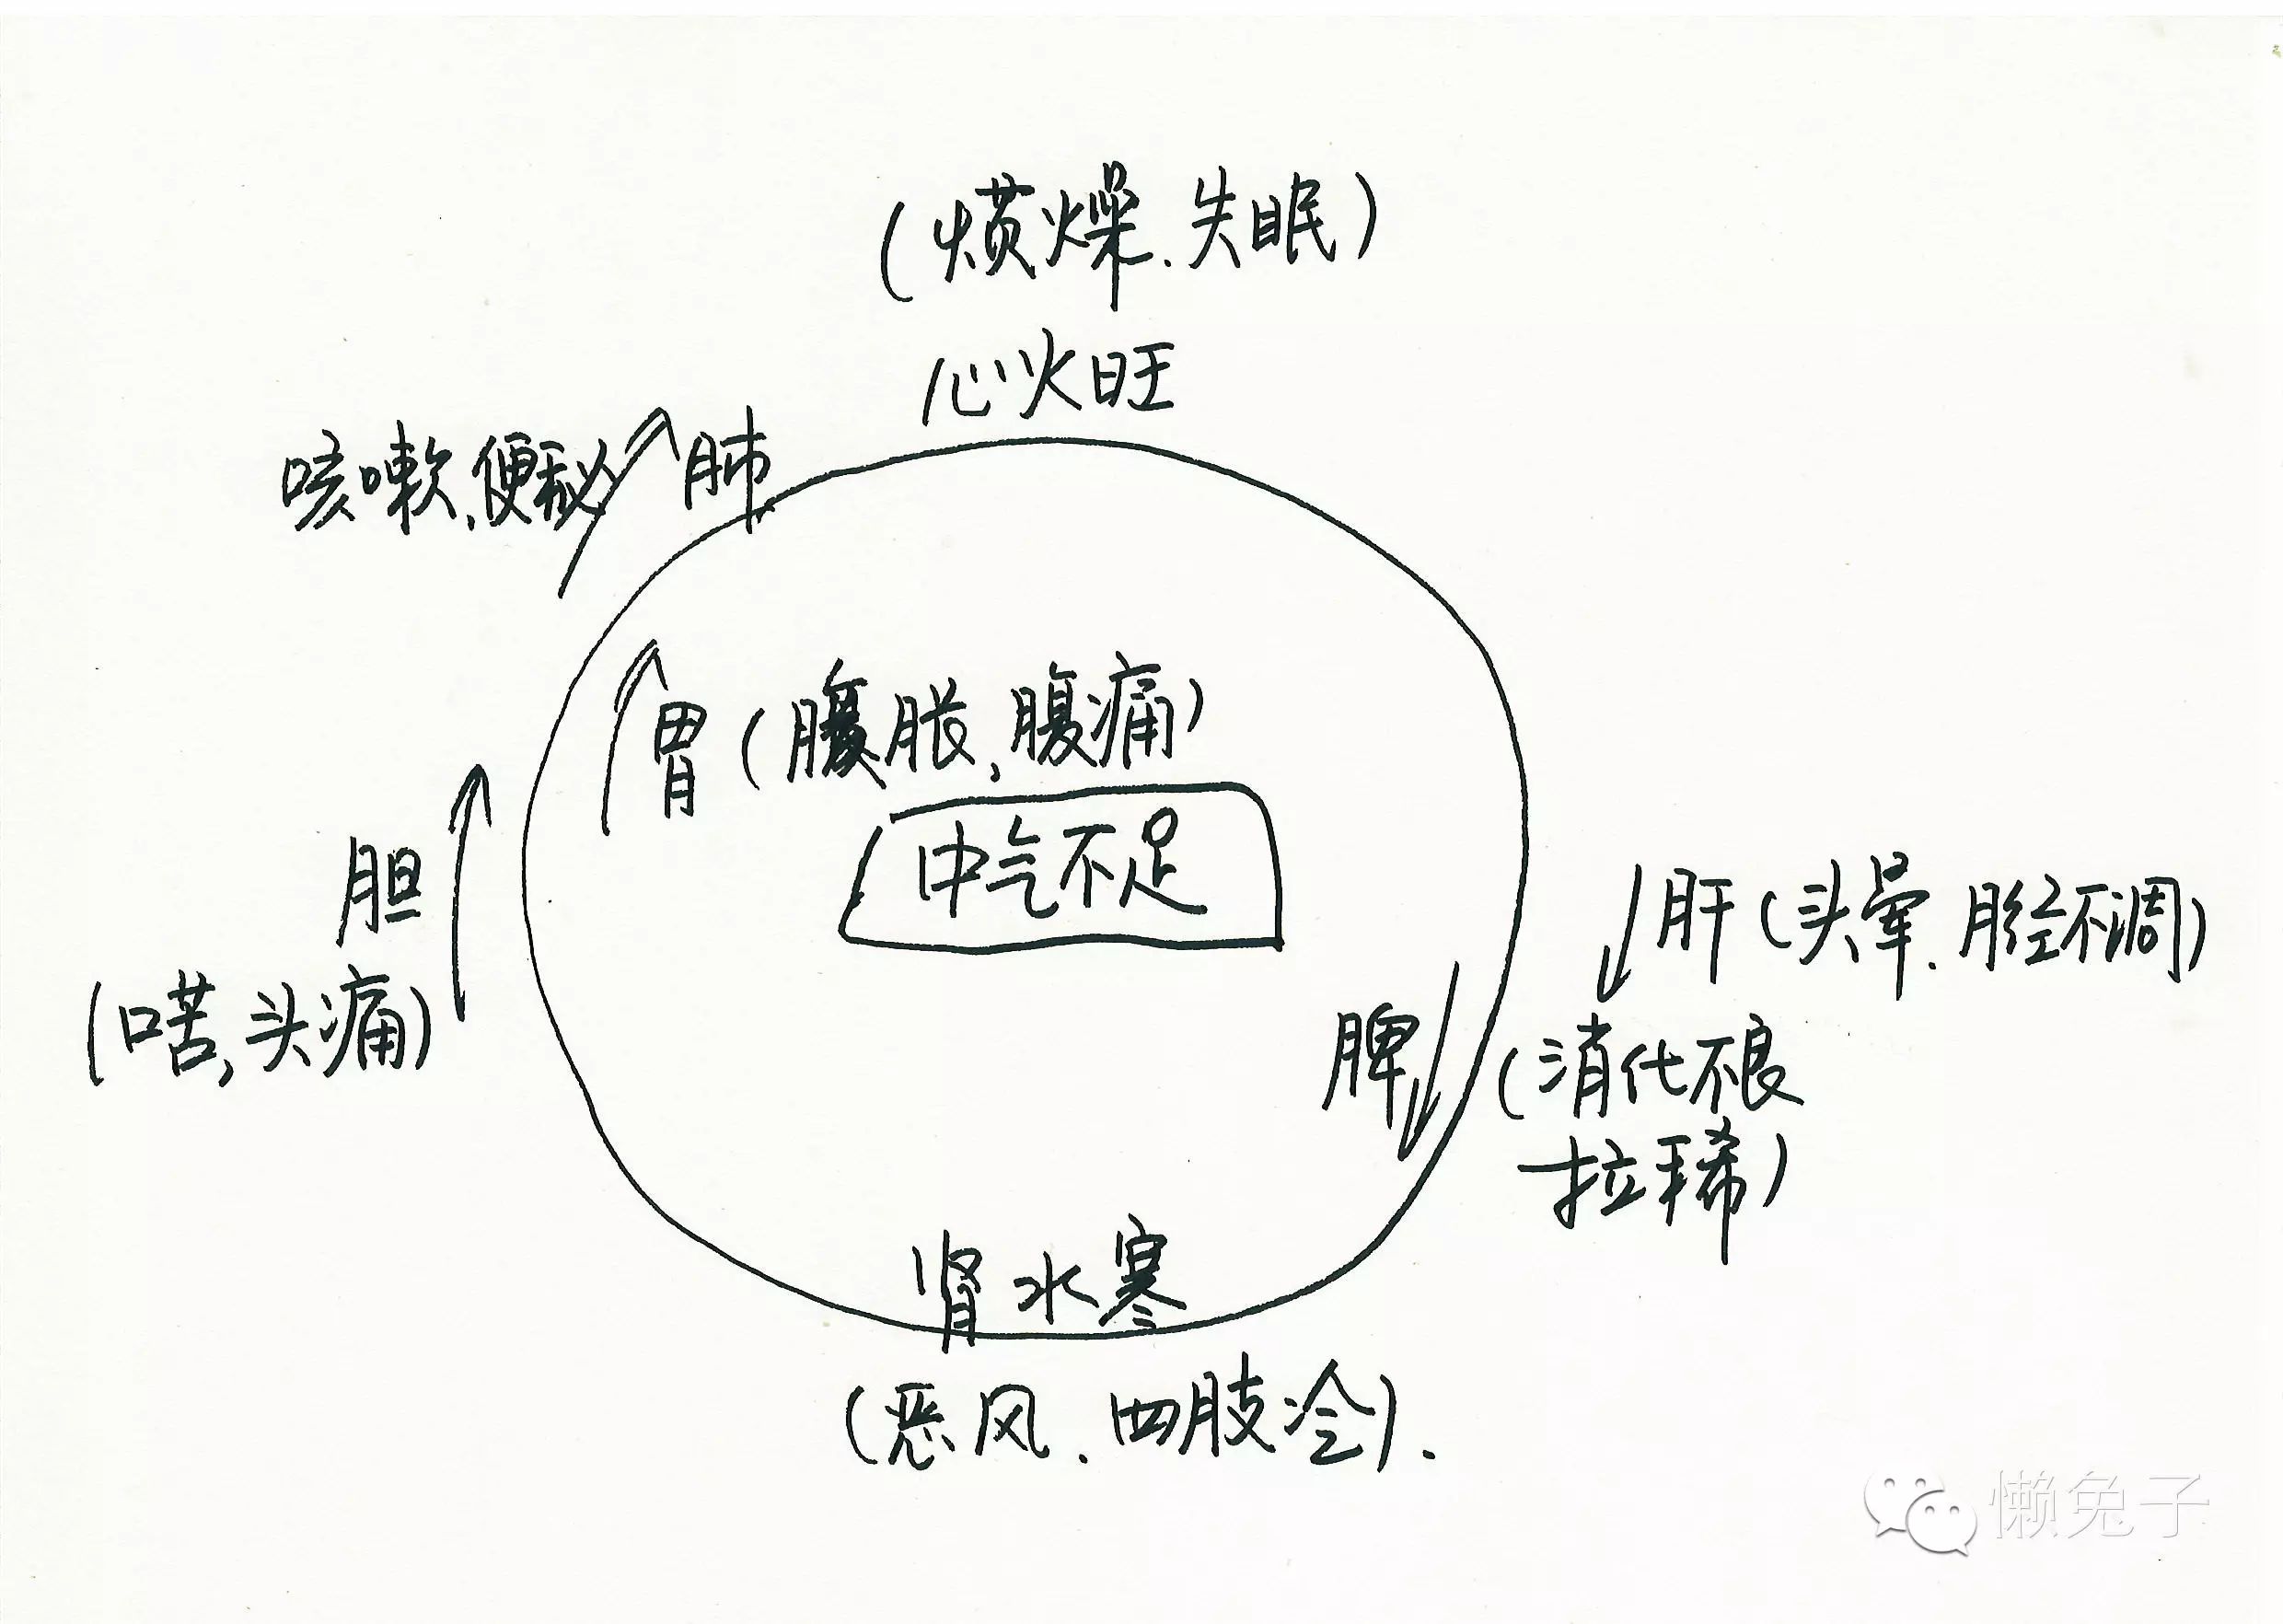 (烦燥.失眠)
心火旺
咳嗽,便秘 肺
胃(腹胀,腹痛)
中气不足
胆
(口苦,头痛)
肝(头晕.月经不调)
脾
(消化不良
拉稀)
肾水寒
(恶风.四肢冷).
懒兔子